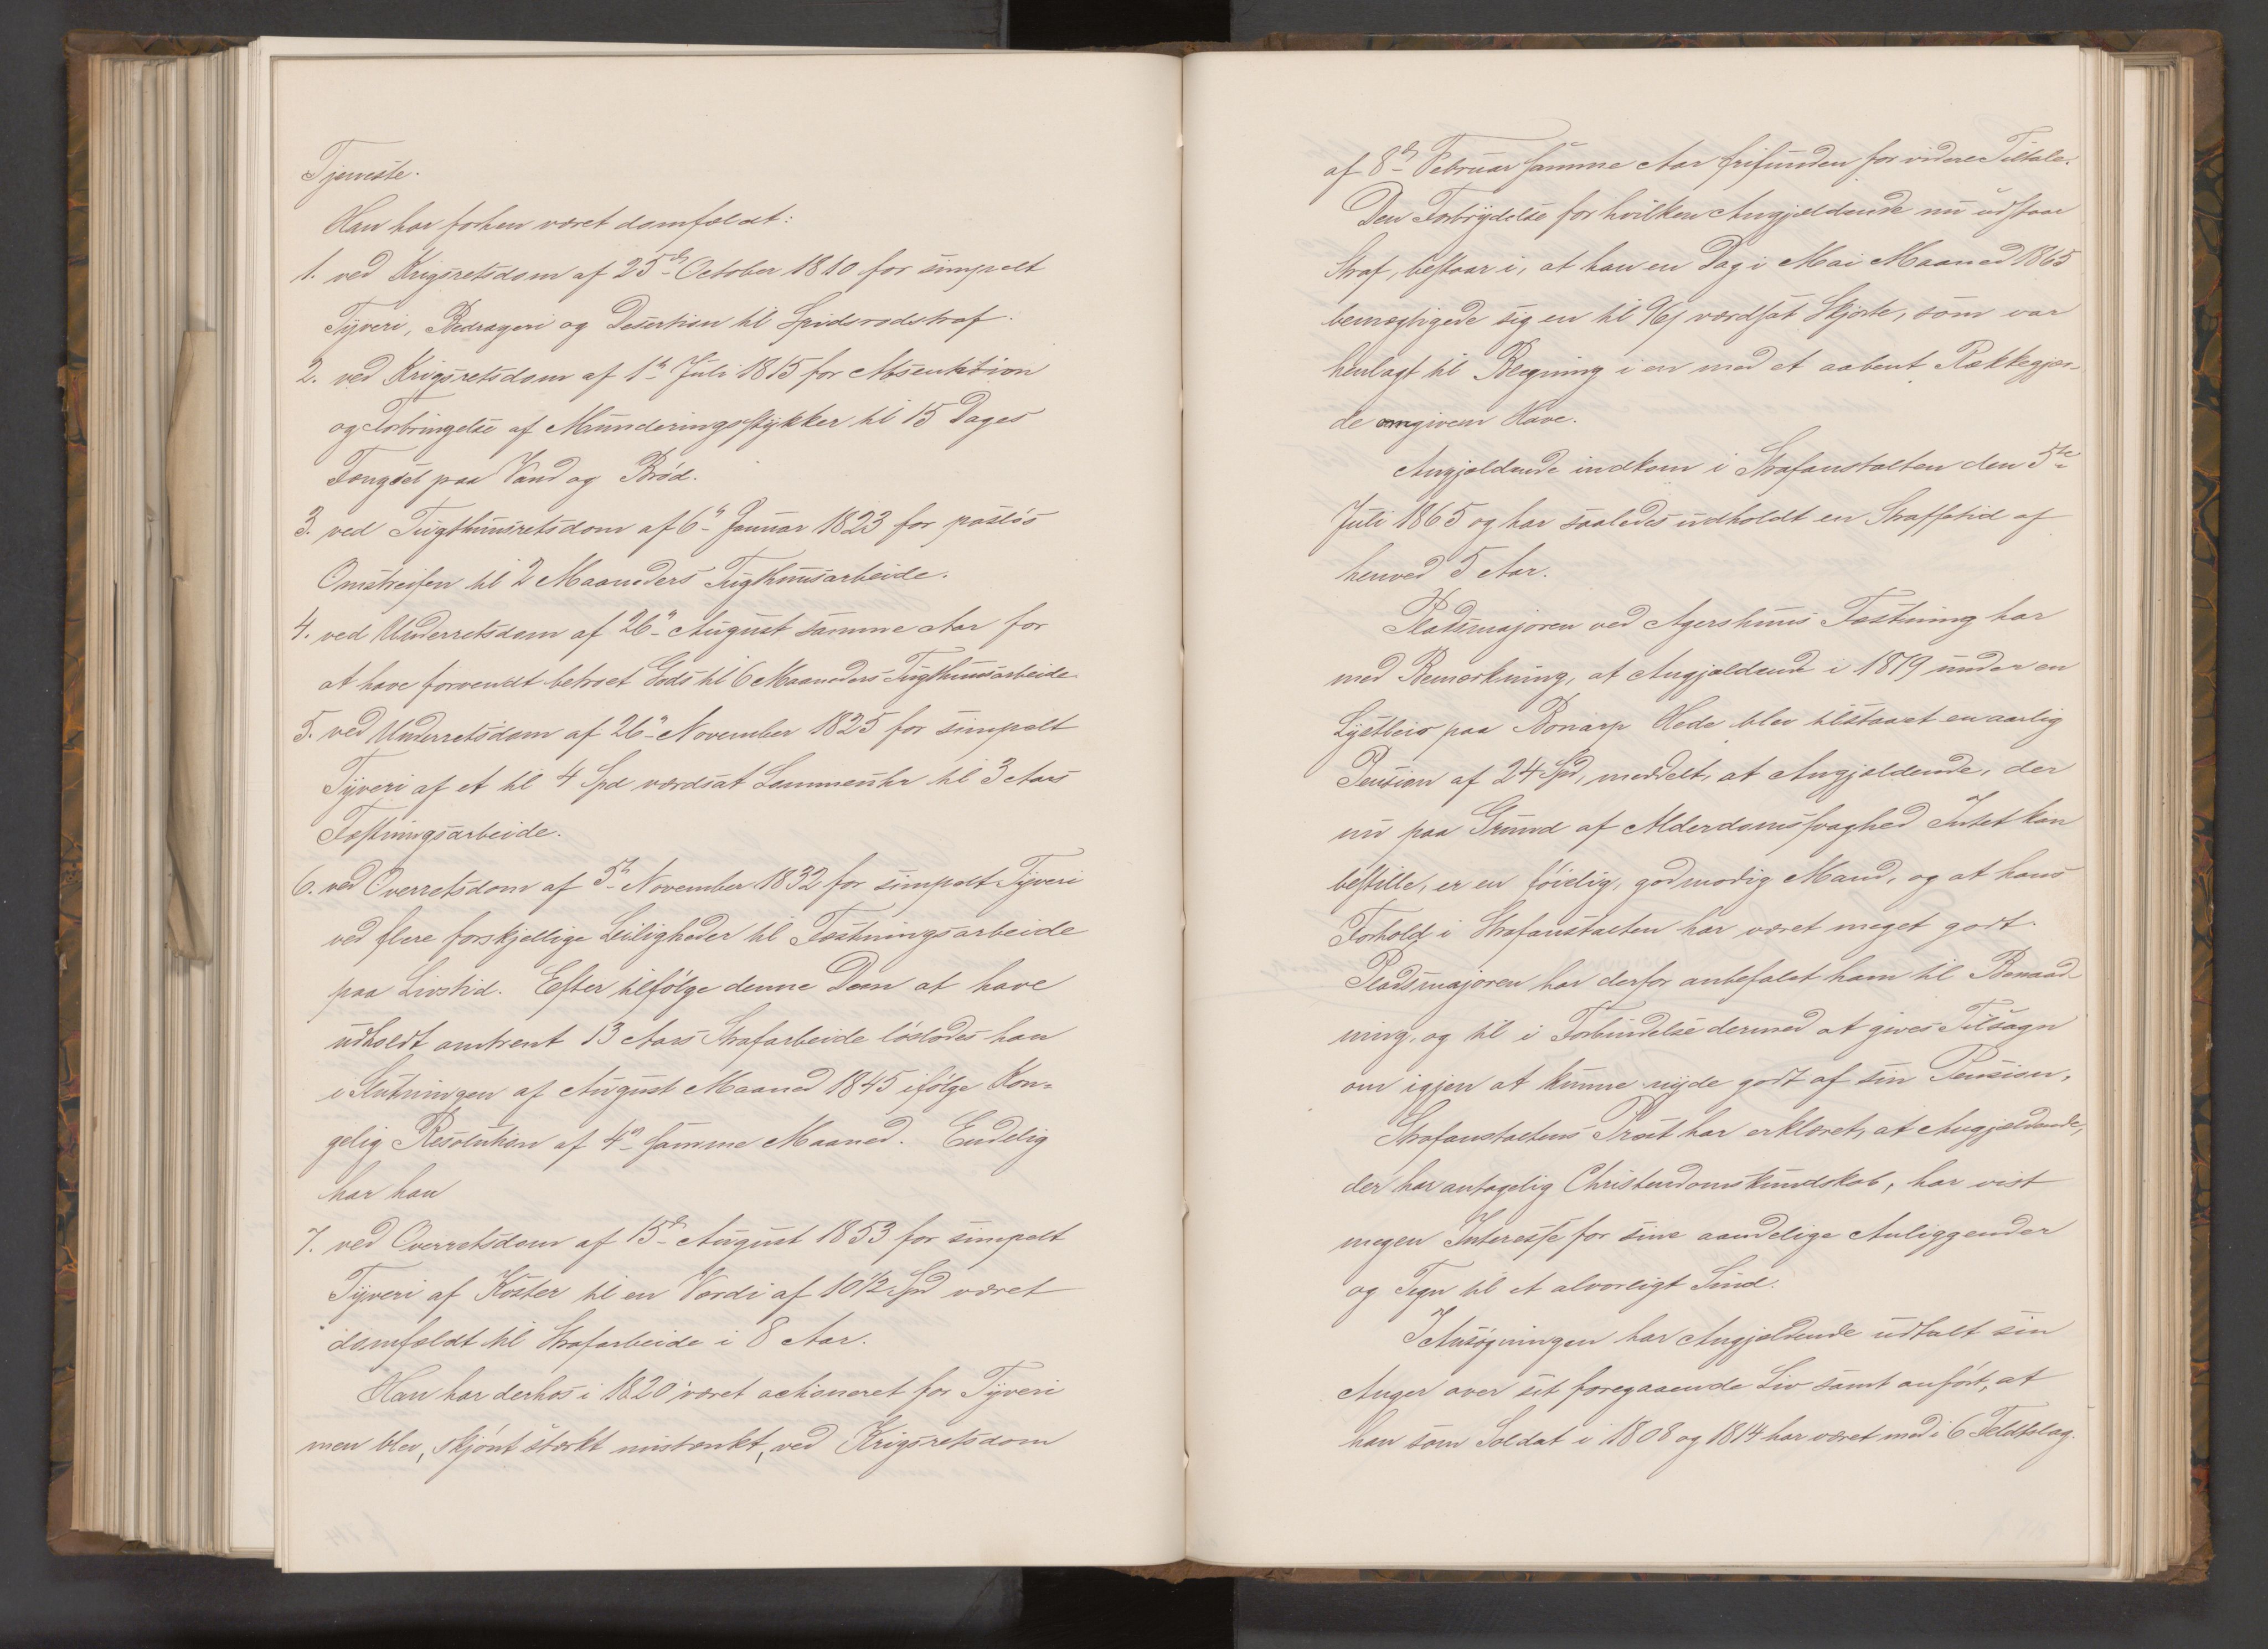 Tjeneste.
Han har forhen været domfældt:
1. ved Krigsretsdom af 25de October 1810 for simpelt
Tyveri, Bedrageri og Desertion til Spidsrodstraf.
2. ved Krigsretsdom af 1ste Juli 1815 for Absentation
og Forbringelse af Munderingsstykker til 15 Dages
Fængsel paa Vand og Brød.
3. ved Tugthuusretsdom af 6te Januar 1823 for pasløs
Omstreifen til 2 Maaneders Tugthuusarbeide.
4. ved Underretsdom af 26de August samme Aar for
at have forvendt betroet Gods til 6 Maaneders Tugthuusarbeide
5. ved Underretsdom af 26de November 1825 for simpelt
Tyveri af et til 4 Spd værdsat Lommeuhr til 3 Aars
Fæstningsarbeide.
6. ved Overretsdom af 5te November 1832 for simpelt Tyveri
ved flere forskjellige Leiligheder til Fæstningsarbeide
paa Livstid. Efter tilfølge denne Dom at have
udholdt omtrent 13 Aars Strafarbeide løslodes han
i Slutningen af August Maaned 1845 ifølge Kon-
gelig Resolution af 4de samme Maaned. Endelig
har han
7. ved Overretsdom af 15de August 1853 for simpelt
Tyveri af Koster til en Værdi af 10 1/2 Spd været
domfældt til Strafarbeide i 8 Aar.
Han har derhos i 1820 været actioneret for Tyveri
men blev, skjønt stærkt mistænkt, ved Krigsretsdom
af 8de Februar samme Aar frifunden for videre Tiltale.
Den Forbrydelse for hvilken Angjældende nu udstaar
Straf, bestaar i, at han en Dag i Mai Maaned 1865
bemægtigede sig en til 96 ß værdsat Skjorte, som var
henlagt til Blegning i en med et aabent Rækkegjær-
de omgiven Have.
Angjældende indkom i Strafanstalten den 5te
Juli 1865 og har saaledes udholdt en Straffetid af
henved 5 Aar.
Pladsmajoren ved Agershuus Fæstning har
med Bemærkning, at Angjældende i 1819 under en
Lystleir paa Bonarp Hede blev tilstaaet en aarlig
Pension af 24 Spd, meddelt, at Angjældende, der
nu paa Grund af Alderdomssvaghed Intet kan
bestille, er en føielig, godmodig Mand, og at hans
Forhold i Strafanstalten har været meget godt.
Pladsmajoren har derfor anbefalet ham til Benaad-
ning, og til i Forbindelse dermed at gives Tilsagn
om igjen at kunne nyde godt af sin Pension.
Strafanstaltens Præst har erklæret, at Angjældende,
der har antagelig Christendomskundskab, har vist
megen Interesse for sine aandelige Anliggender
og Tegn til et alvorligt Sind.
I Ansøgningen har Angjældende udtalt sin
Anger over sit foregaaende Liv samt anført, at
han som Soldat i 1808 og 1814 har været med i 6 Feldtslag.